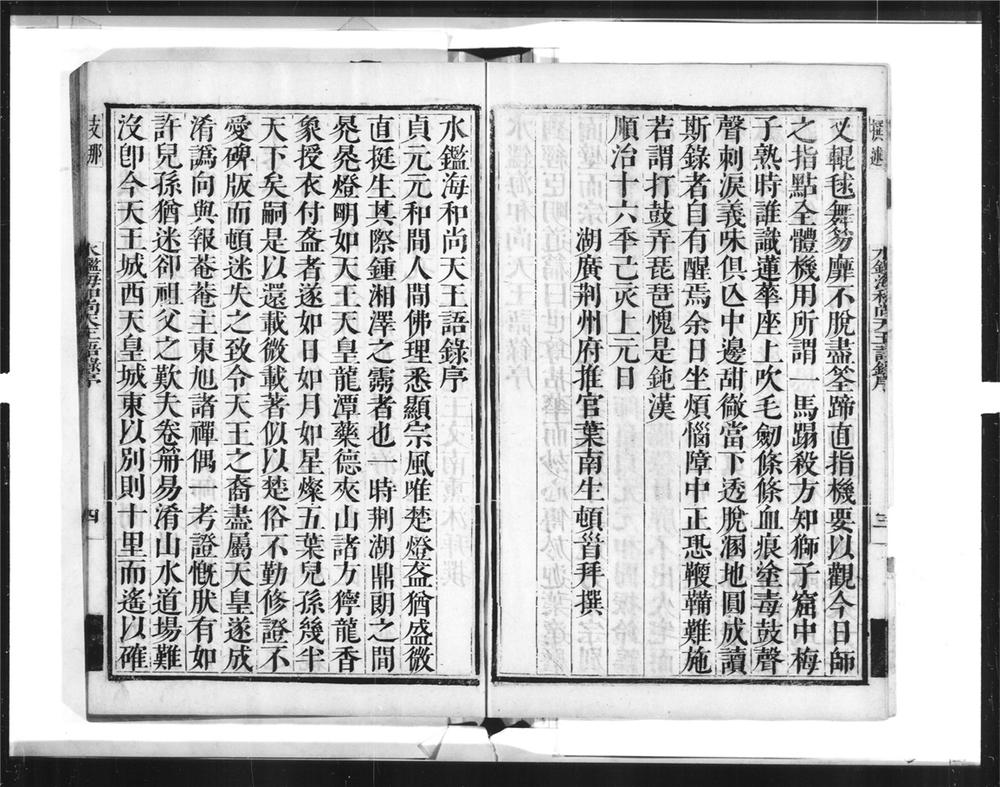 又輥毬舞笏靡不脫盡筌蹄直指機要以觀今日師
之指點全體機用所謂一馬蹋殺方知獅子窟中梅
子熟時誰識蓮華座上吹毛劒條條血痕塗毒鼓聲
聲刺淚義味俱亾中邊甜徹當下透脫溷地圓成讀
斯錄者自有醒焉余日坐煩惱障中正恐鞭鞴難施
若謂打鼓弄琵琶愧是鈍漢
順治十六季己亥上元日
湖廣荆州府推官葉南生頓首拜撰
水鑑海和尚天王語錄序
貞元元和間人間佛理悉顯宗風唯楚燈盇猶盛微
直挺生其際鍾湘澤之霱者也一時荆湖鼎朗之間
晃晃燈明如天王天皇龍潭藥德夾山諸方獰龍香
象授衣付盇者遂如日如月如星燦五葉兒孫幾半
天下矣嗣是以還載微載著似以楚俗不勤修證不
愛碑版而頓迷失之致令天王之裔盡屬天皇遂成
淆譌向與報菴菴主東旭諸禪偶一考證慨肰有如
許兒孫猶迷卻祖父之歎夫卷帋易淆山水道場難
沒卽今天王城西天皇城東以別則十里而遙以確
水鑑海和尚天王語錄序
四